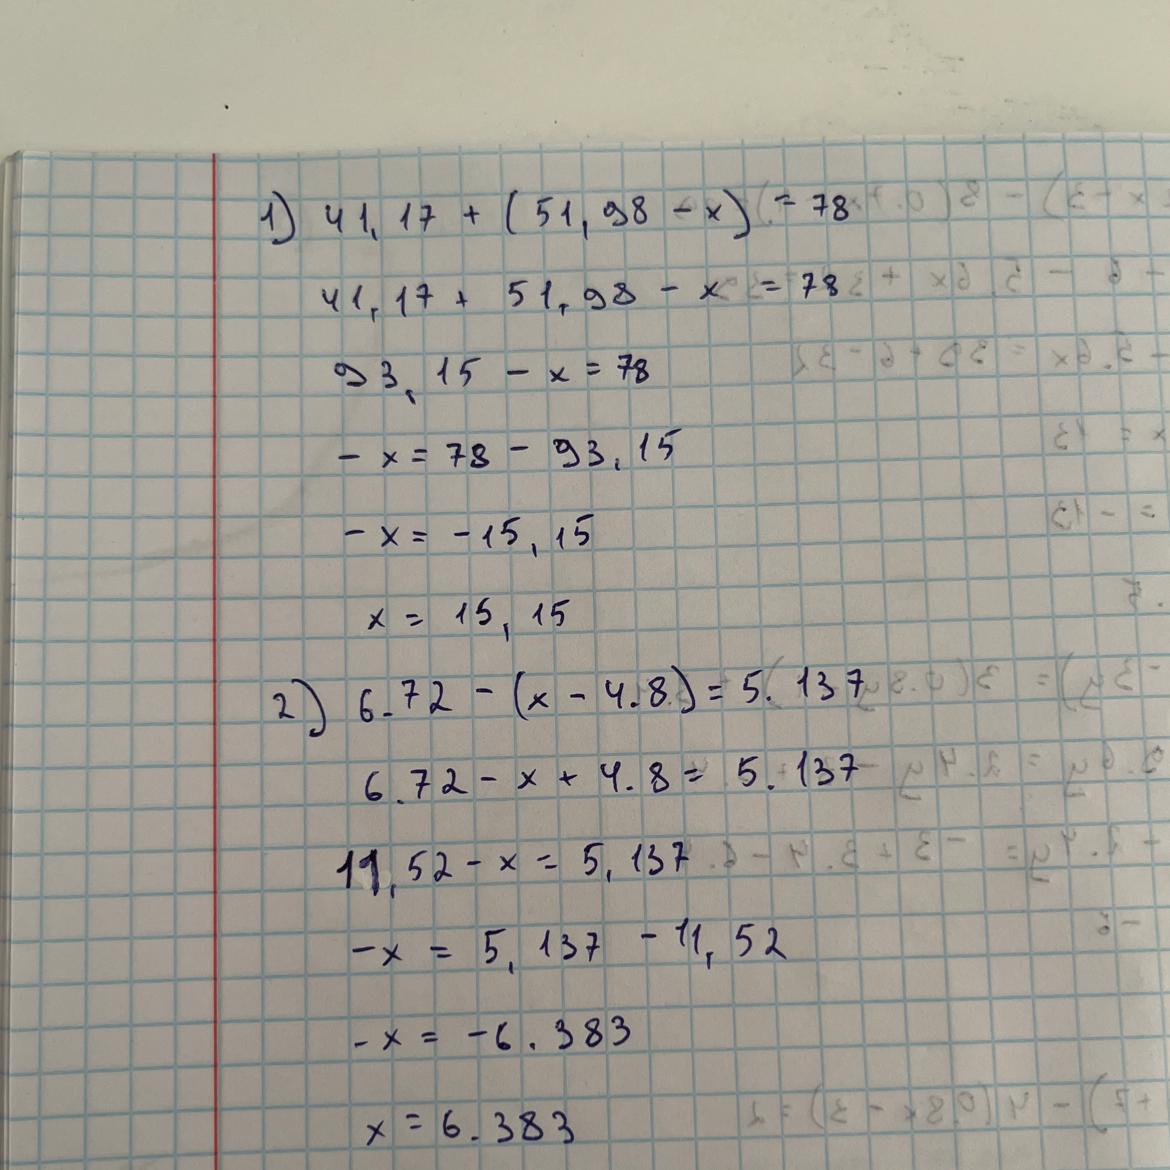 1) 41,17 + (51,98 - x) = 78
41,17 + 51,98 - x = 78
93,15 - x = 78
- x = 78 - 93,15
- x = -15,15
x = 15,15
2) 6.72 - (x - 4.8) = 5.137
6.72 - x + 4.8 = 5.137
11,52 - x = 5,137
-x = 5,137 - 11,52
-x = -6.383
x = 6.383